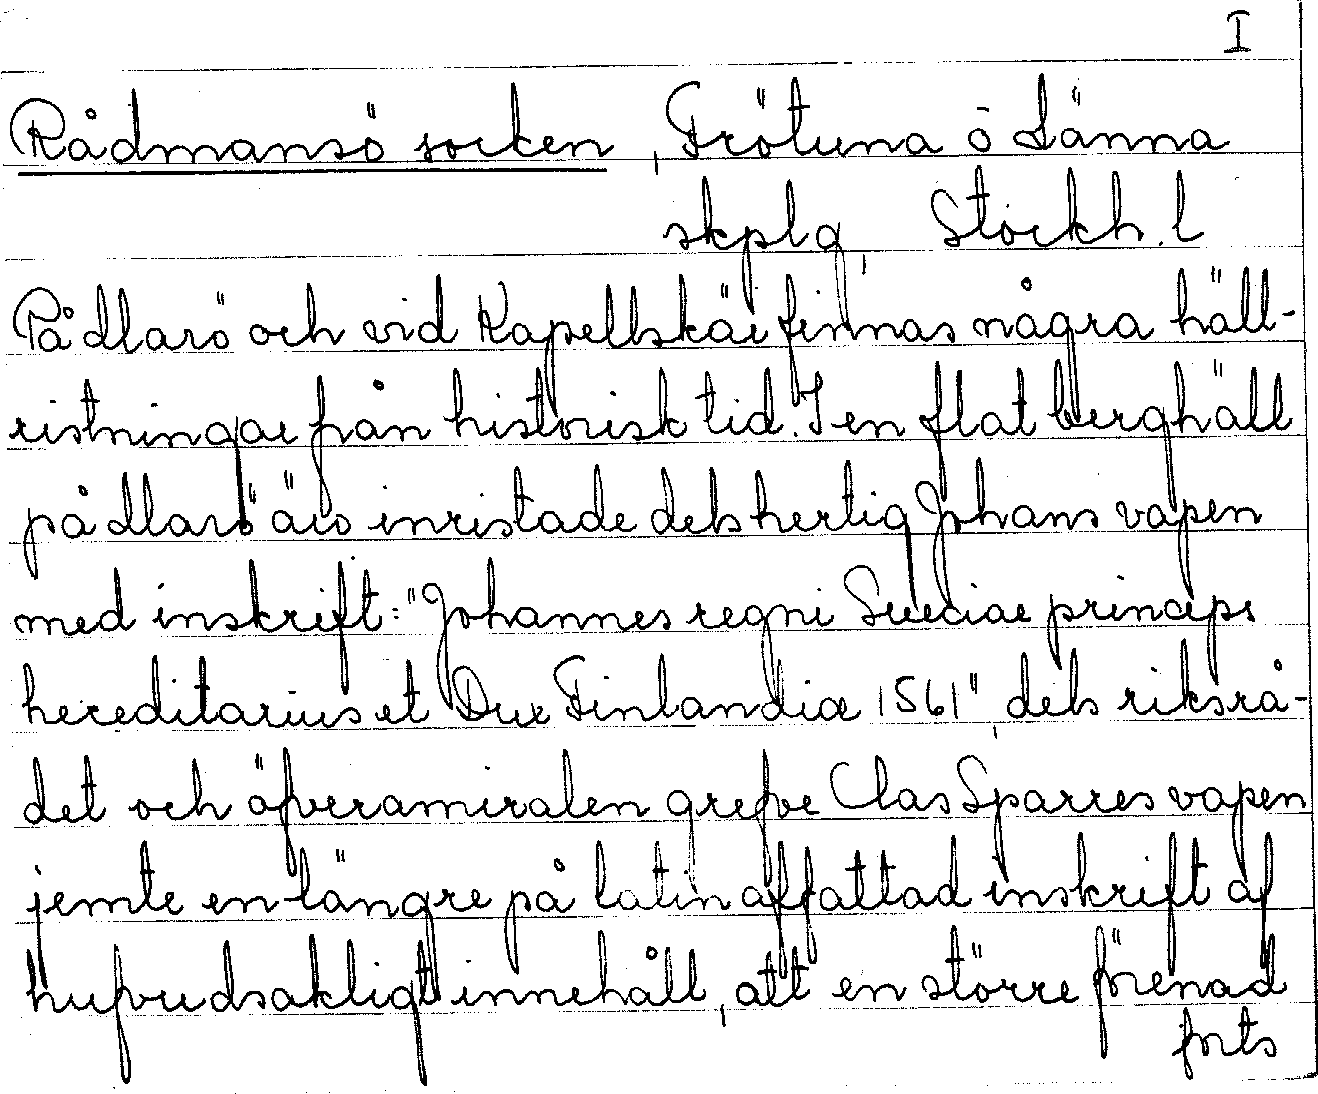 I
Rådmansö socken, Frötuna o Länna
skplg, Stockh. l
På dlarö och vid Kapellskär finnas några häll-
ristningar från historisk tid. I en flat berghäll
på dlarö äro inristade dels hertig Johans vapen
med inskrift: "Johannes regni Sueciae princeps
hereditarius et Dux Finlandiæ 1561", dels riksrå-
det och öfveramiralen grefve Clas Sparres vapen
jemte en längre på latin affattad inskrift af
hufvudsakligt innehåll, att en större förenad
forts